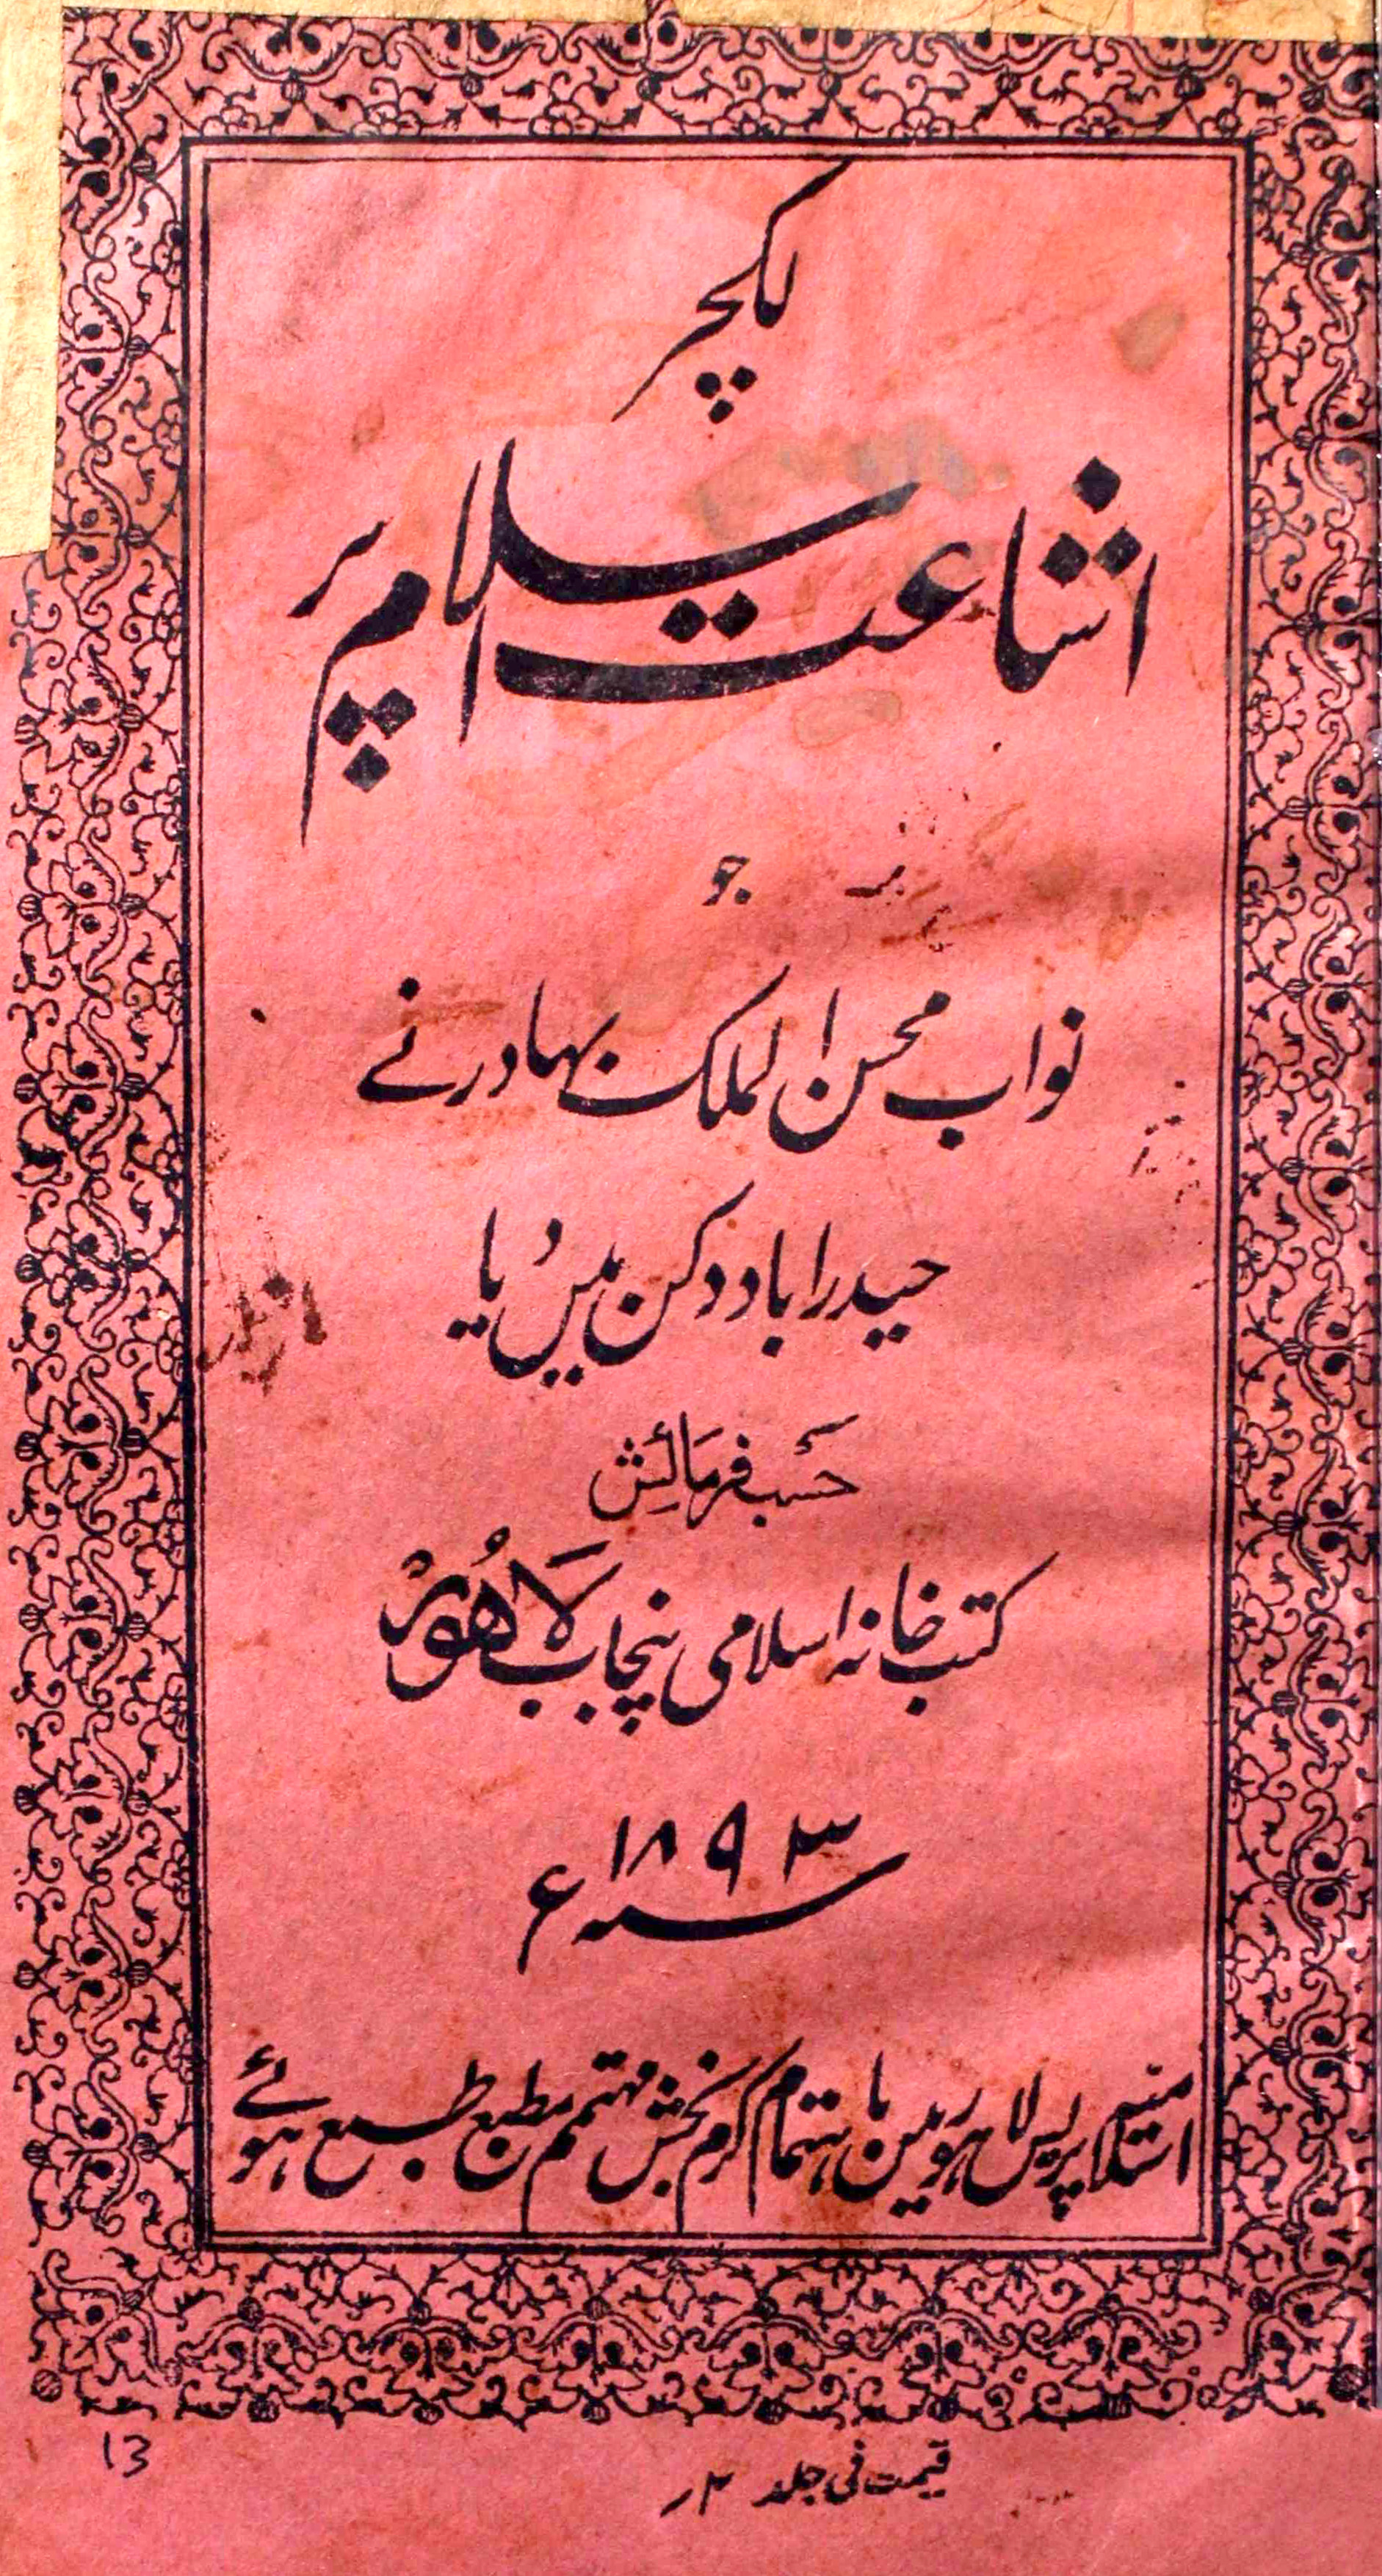 لکچر
اشاعت اسلام پر
جو
نواب محسن الملک بہادر نے
حیدراباد دکن میں دیا
حسب فرمائش
کتب خانہ اسلامی پنجاب لاھور
سنہ ۱۸۹۳ء
اسلامیہ پریس لاہور مین باہتمام کرم بخش مہتمم مطبع طبع ہوئے
13
قیمت فی جلد ۲ر